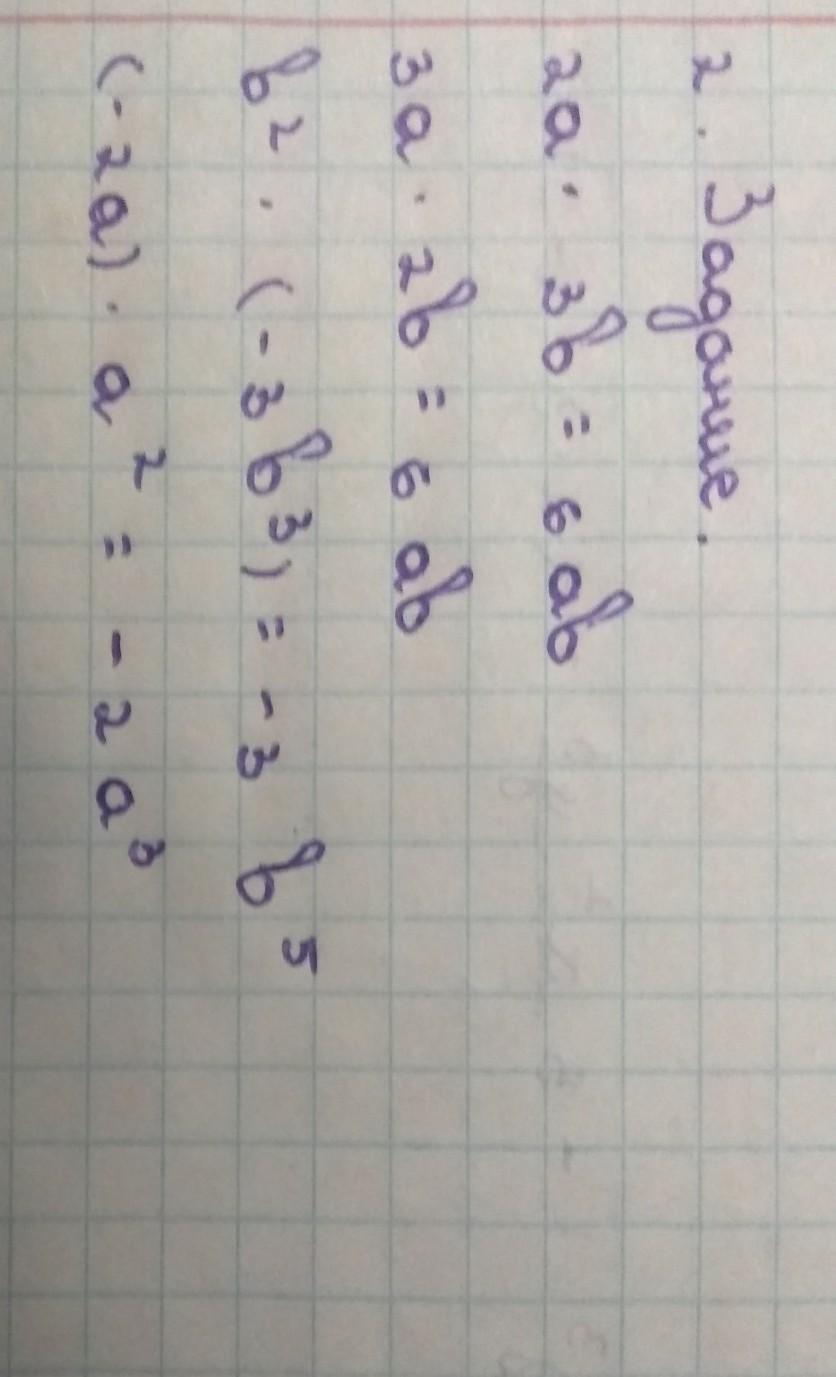 2. Задание.
2a · 3b = 6ab
3a · 2b = 6ab
b² · (-3b³) = -3b⁵
(-2a) · a² = -2a³